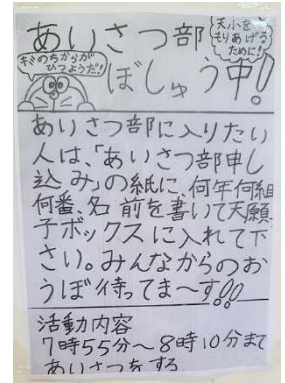 あいさつ部
天小を
もりあげる
ために!
キミのちからが
ひつようだ!
ぼしゅう中!
あいさつ部に入りたい
人は、「あいさつ部申し
込み」の紙に、何年何組
何番、名前を書いて天願
子ボックスに入れて下
さい。みんなからのお
うぼ待ってま〜す!!
活動内容
7時55分〜8時10分まで
あいさつをする